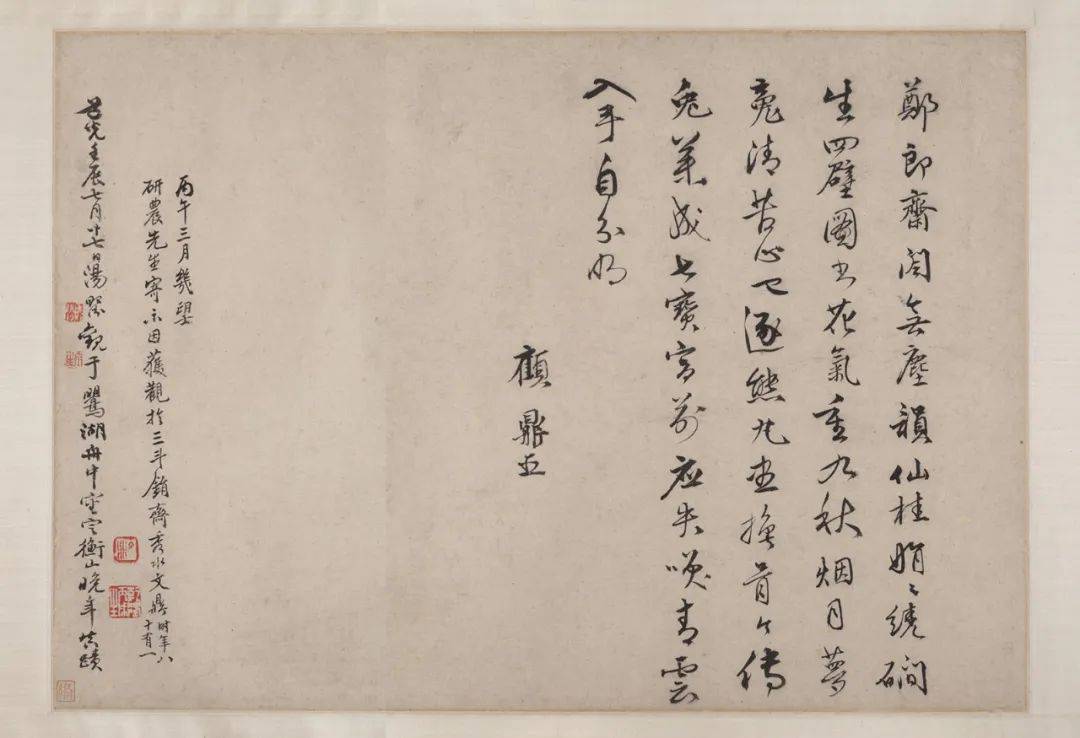 鄭郎齋閣無塵韻仙桂娟〻繞磵
生四壁圖書花氣重九秋烟月夢
魂清苦心已逐熊丸換骨今傳
兔藥成七寶宮前應失咲青雲
入手自分明
顧鼎臣
丙午三月幾望
研農先生寄示因獲觀於三斗齋秀水文鼎時年八
十有一
道光壬辰七月十七日湯觀于鴛湖舟中審定衡山晚年真蹟